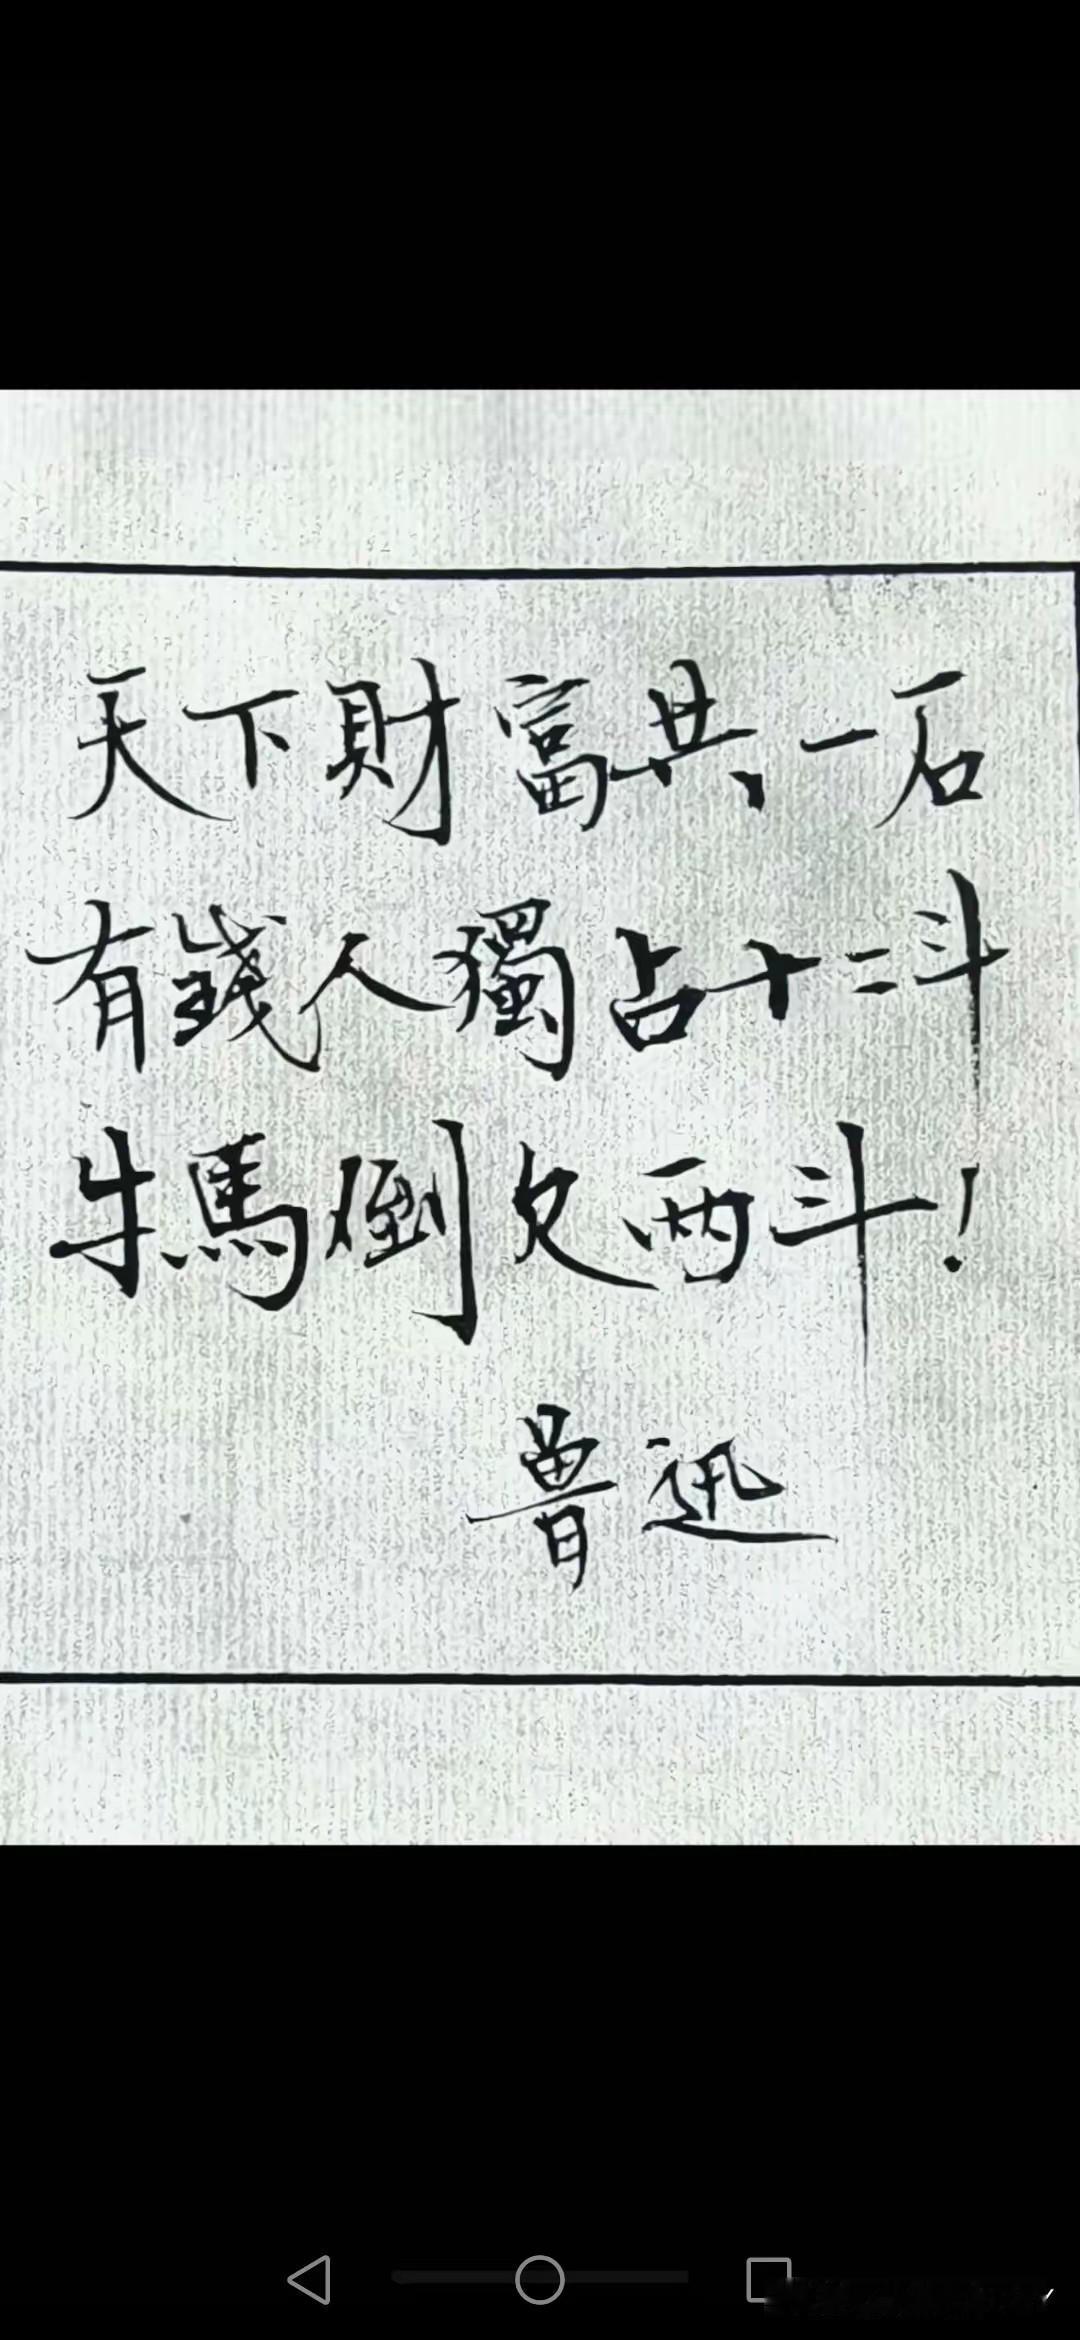 天下財富共一石
有錢人獨占十二斗
牛馬倒欠兩斗！
魯迅